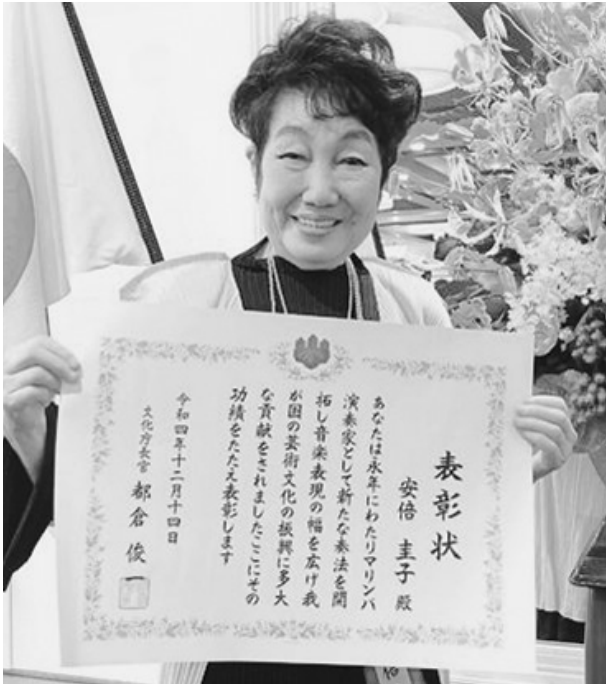 表彰状
安倍圭子殿
あなたは永年にわたりマリンバ
演奏家として新たな奏法を開
拓し音楽表現の幅を広げ我
が国の芸術文化の振興に多大
な貢献をされましたここにその
功績をたたえ表彰します
令和四年十二月十四日
文化庁長官 都倉俊一